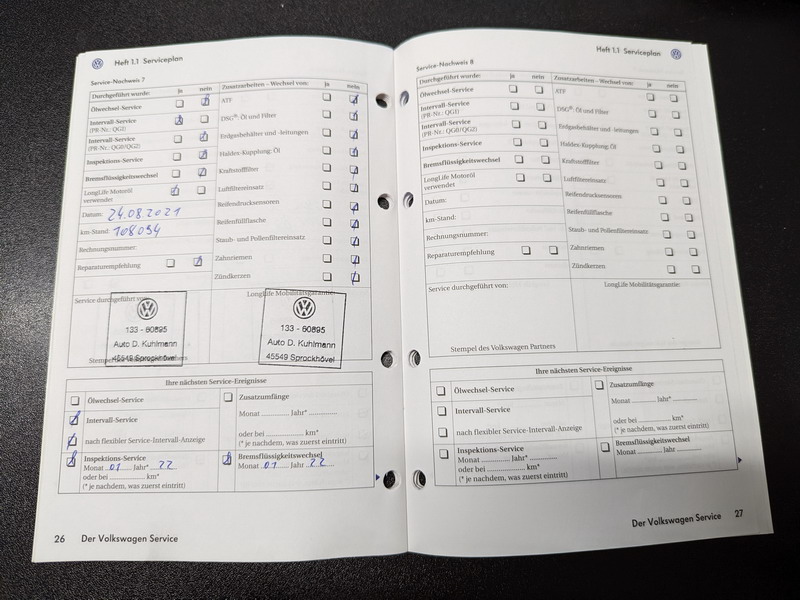 Heft 1.1 Serviceplan
Service-Nachweis 7
Durchgeführt wurde: ja nein
Ölwechsel-Service
Intervall-Service
(PR-Nr.: QG2)
Intervall-Service
(PR-Nr.: QG0/QG2)
Inspektions-Service
Bremsflüssigkeitswechsel
LongLife Motoröl
verwendet
Datum: 24.08.2021
km-Stand: 108094
Rechnungsnummer:
Reparaturempfehlung
Zusatzarbeiten – Wechsel von: ja nein
ATF
DSG®: Öl und Filter
Erdgasbehälter und -leitungen
Haldex-Kupplung: Öl
Kraftstofffilter
Luftfiltereinsatz
Reifendrucksensoren
Reifenfüllflasche
Staub- und Pollenfiltereinsatz
Zahnriemen
Zündkerzen
Service durchgeführt von:
133 - 60895
Auto D. Kuhlmann
45549 Sprockhövel
Stempel des
LongLife Mobilitätsgarantie:
133 - 60895
Auto D. Kuhlmann
45549 Sprockhövel
Ihre nächsten Service-Ereignisse
Ölwechsel-Service
Intervall-Service
nach flexibler Service-Intervall-Anzeige
Inspektions-Service
Monat 01 Jahr* 22
oder bei ............ km*
(* je nachdem, was zuerst eintritt)
Zusatzumfänge
Monat ............ Jahr* ............
oder bei ............ km*
(* je nachdem, was zuerst eintritt)
Bremsflüssigkeitswechsel
Monat 01 Jahr 22
26 Der Volkswagen Service
Heft 1.1 Serviceplan
Service-Nachweis 8
Durchgeführt wurde: ja nein
Ölwechsel-Service
Intervall-Service
(PR-Nr.: QG1)
Intervall-Service
(PR-Nr.: QG0/QG2)
Inspektions-Service
Bremsflüssigkeitswechsel
LongLife Motoröl
verwendet
Datum:
km-Stand:
Rechnungsnummer:
Reparaturempfehlung
Zusatzarbeiten – Wechsel von: ja nein
ATF
DSG®: Öl und Filter
Erdgasbehälter und -leitungen
Haldex-Kupplung: Öl
Kraftstofffilter
Luftfiltereinsatz
Reifendrucksensoren
Reifenfüllflasche
Staub- und Pollenfiltereinsatz
Zahnriemen
Zündkerzen
Service durchgeführt von:
Stempel des Volkswagen Partners
LongLife Mobilitätsgarantie:
Ihre nächsten Service-Ereignisse
Ölwechsel-Service
Intervall-Service
nach flexibler Service-Intervall-Anzeige
Inspektions-Service
Monat ............ Jahr* ............
oder bei ............ km*
(* je nachdem, was zuerst eintritt)
Zusatzumfänge
Monat ............ Jahr* ............
oder bei ............ km*
(* je nachdem, was zuerst eintritt)
Bremsflüssigkeitswechsel
Monat ............ Jahr ............
Der Volkswagen Service 27